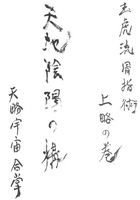 玉虎流骨指術
上略の巻
天地陰陽の構
天略宇宙合掌